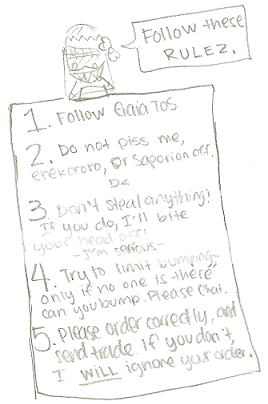 Follow these
RULEZ.
1. Follow Gaia TOS.
2. Do not piss me,
enekororo, or Saporion off.
D<
3. Don't steal anything!
If you do, I'll bite
your head off!
-I'm serious-
4. Try to limit bumping,
only if no one is there
can you bump. Please Chat.
5. Please order correctly, and
send trade. If you don't,
I WILL ighore your order.